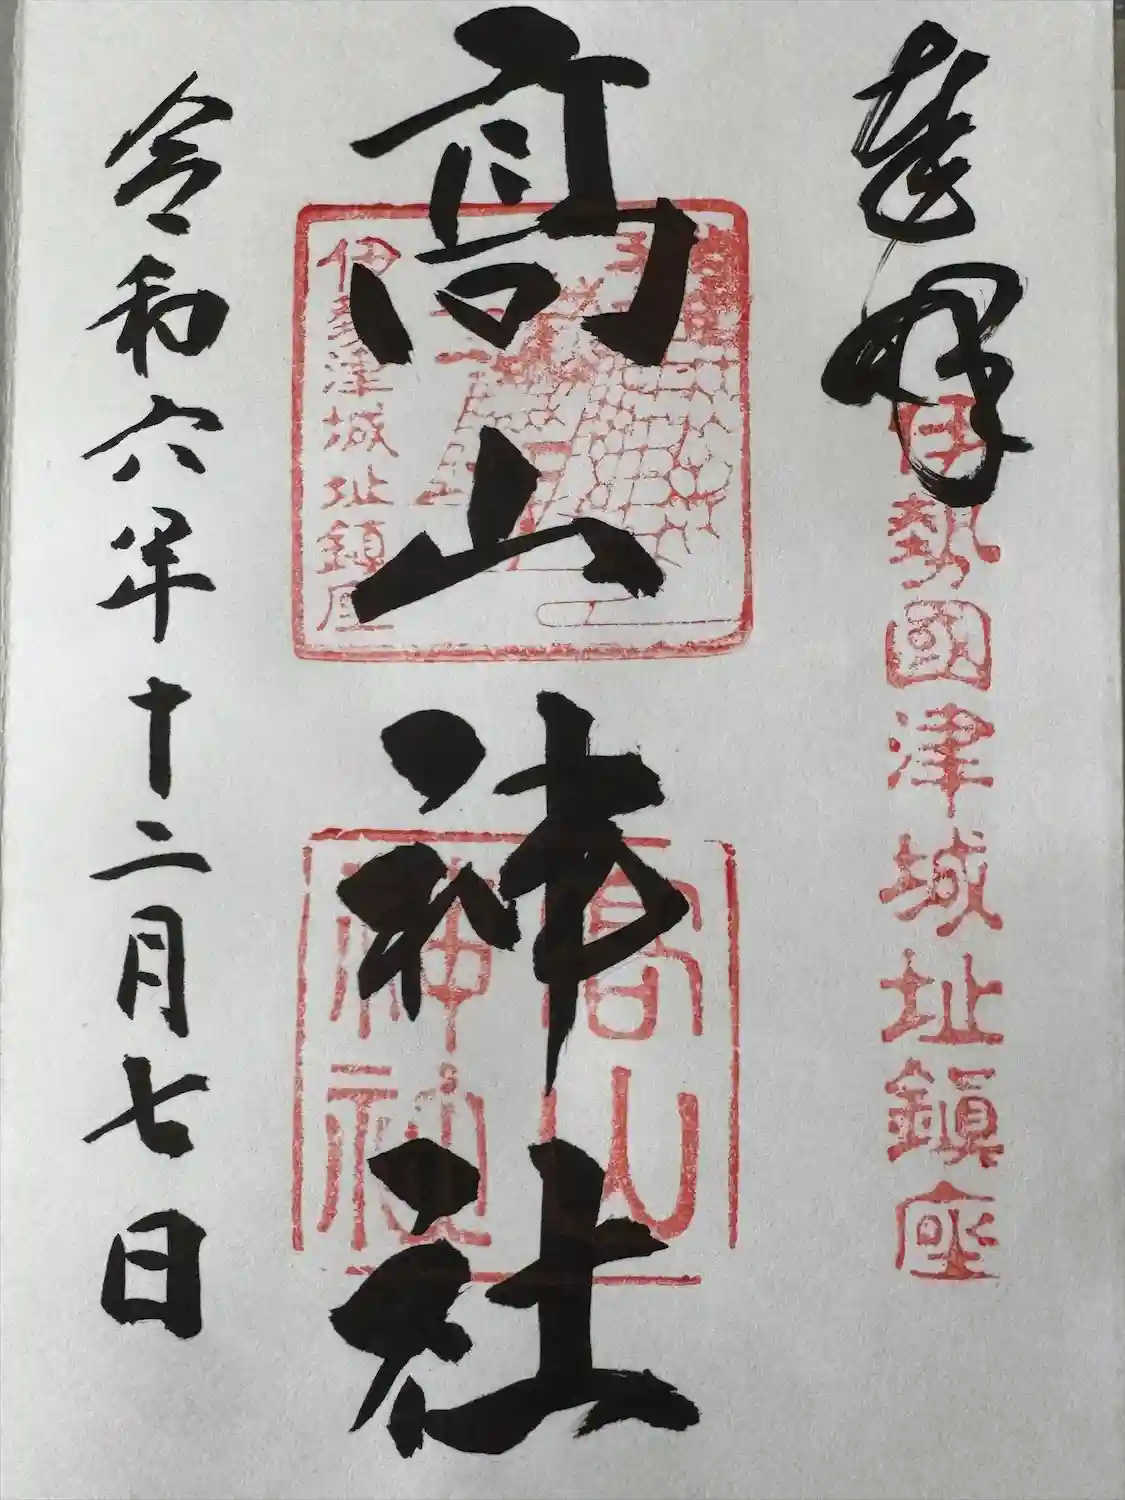 奉拝
伊勢國津城址鎮座
高山神社
伊勢津城址鎮座
高山
神社
令和六年十二月七日